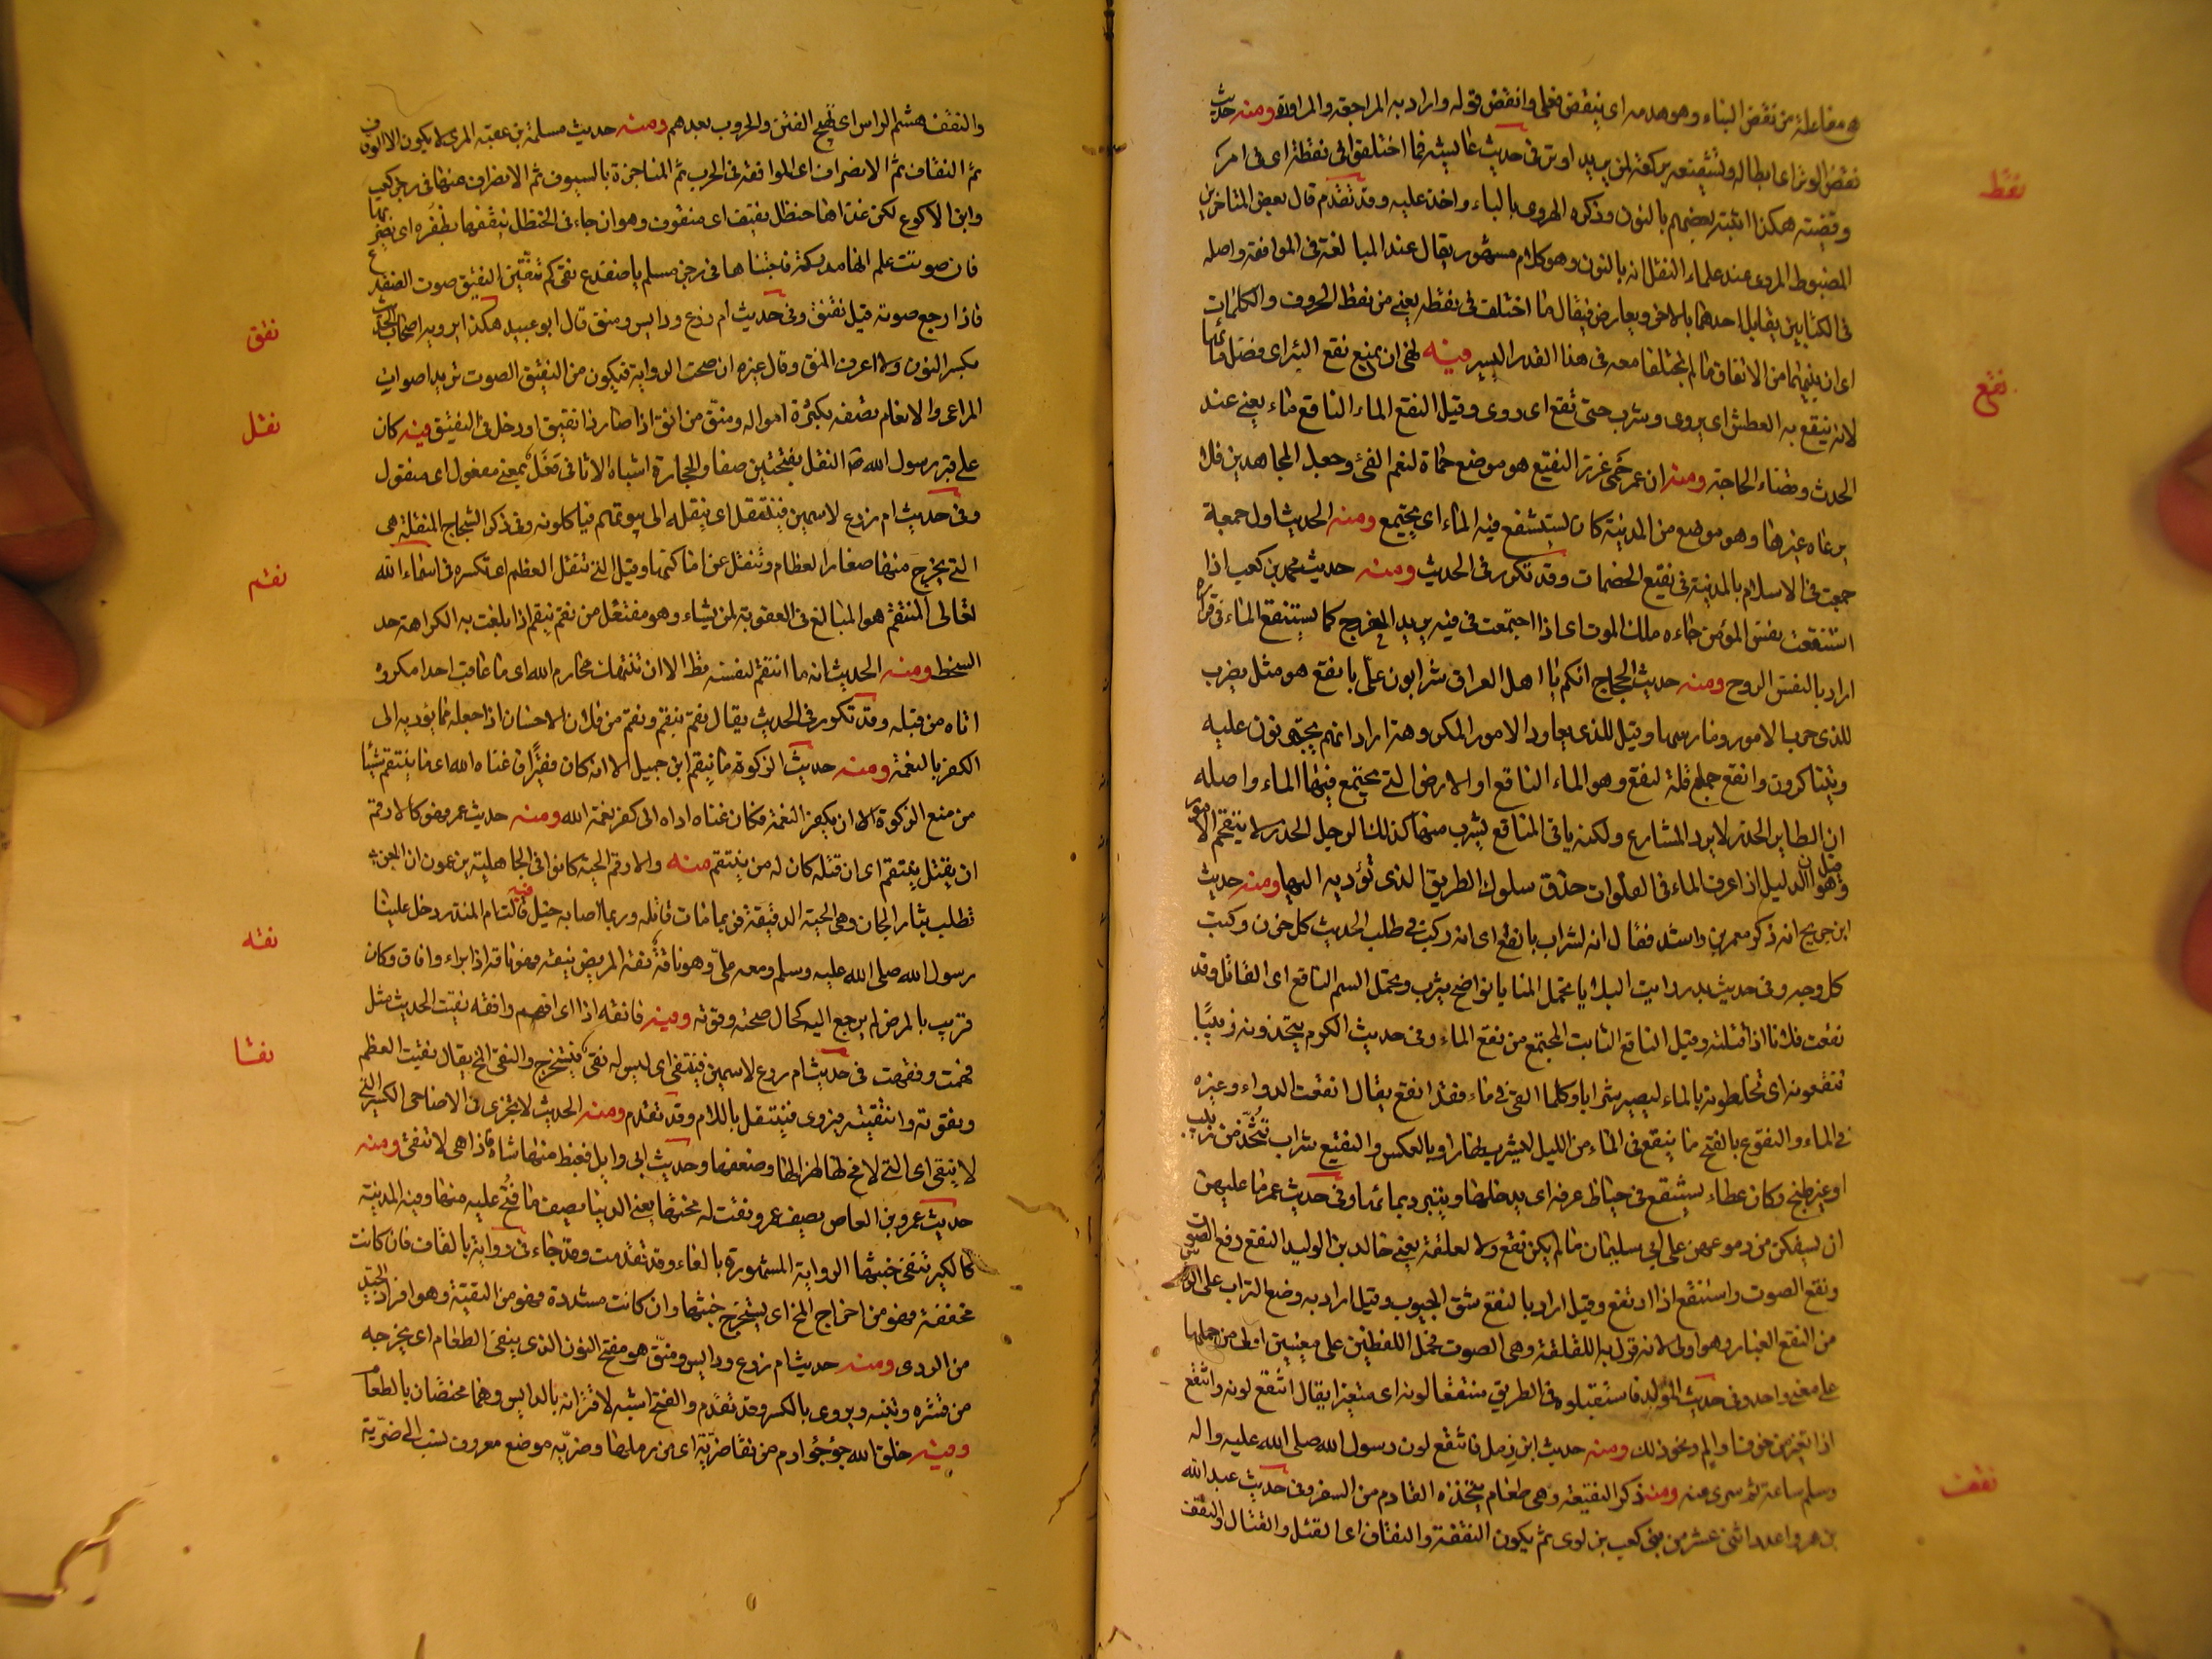 هی مفاعلة من نقض البناء وهو هدمه ای ینقض قولی وانقض قوله واراد به المراجعة والمراودة ومنه حدیث
نقض الوتر ای ابطاله وتشفیعه برکعة لمن یرید ان یتنفل بعد ان اوتر فی حدیث عایشه فما اختلفوا فی نقطة ای فی امر
نقط
وقضیته هکذا اثبته بعضهم بالنون وذکره الهروی بالباء واخذ علیه وقد تقدم قال بعض المتاخرین
المضبوط المروی عند علماء النقل انه بالنون وهو کلام مشهور یقال عند المبالغة فی الموافقة واصله
فی الکتابین یقابل احدهما بالاخر ویعارض فیقال ما اختلف فی نقطه یعنی من نقط الحروف والکلمات
ای ان بینهما من الاتفاق ما لم یختلفا معه فی هذا القدر الیسیر فیه نهی ان یمنع نقع البئر ای فضل مائها
نقع
لانه ینقع به العطش ای یروی وشرب حتی نقع ای روی وقیل النقع الماء الناقع ماء یعنی عند
الحدث وقضاء الحاجة ومنه ان عمر حمی غرز النقیع هو موضع حماه لنعم الفئ وجعل المجاهدین فلا
یرعاه غیرها وهو موضع من المدینة کان یستنقع فیه الماء ای یجتمع ومنه الحدیث اول جمعة
جمعت فی الاسلام بالمدینة فی نقیع الخضمات وقد تکرر فی الحدیث ومنه حدیث محمد بن کعب اذا
استنقعت نفس المؤمن جاءه ملک الموت ای اذا اجتمعت فی فیه یرید الخروج کما یستنقع الماء فی قراره
اراد بالنفس الروح ومنه حدیث الحجاج انکم یا اهل العراق شرابون علی بانقع هو مثل یضرب
للذی جرب الامور ومارسها وقیل للذی یعاود الامور المکروهة اراد انهم یجترئون علیه
ویتناکرون وانقع جمع قلة لنقع وهو الماء الناقع او الارض التی یجتمع فیها الماء واصله
ان الطایر الحذر لا یرد المشارع ولکنه یاتی المناقع یشرب منها کذلک الرجل الحذر لا یتقحم الامور
وقیل هو ان الدلیل اذا عرف الماء فی الفلوات حذق سلوک الطریق الذی تؤدیه الیها ومنه حدیث
ابن جریج انه ذکر معمر بن راشد فقال انه لشراب بانقع ای انه رکب فی طلب الحدیث کل حزن وکتب
کل وجه وفی حدیث بدر رایت البلایا تحمل المنایا نواضح یثرب وتحمل السم الناقع ای القاتل وقد
نقعت فلانا اذا قتلته وقیل الناقع الثابت المجتمع من نقع الماء وفی حدیث الکرم یتخذونه زبیبًا
تنقعونه ای تخلطونه بالماء لیصیر شرابا وکلما القی فی ماء فقد انقع یقال انقعت الدواء وغیره
فی الماء والنقوع بالفتح ما ینقع فی الماء من اللیل لیشرب نهارا وبالعکس والنقیع شراب تتخذ من زبیب
او غیر طبخ وکان عطاء یستنقع فی حیاض عرفه ای یدخلها ویتبرد بمائها وفی حدیث عمر ما علیهن
ان یسفکن من دموعهن علی ابی سلیمان ما لم یکن نقع ولا لقلقة یعنی خالد بن الولید النقع رفع الصوت
ونقع الصوت واستنقع اذا ارتفع وقیل اراد بالنقع شق الجیوب وقیل اراد به وضع التراب علی الراس
من النقع الغبار وهو اولی لانه قرن به اللقلقة وهی الصوت فحمل اللفظین علی معنیین اولی من حملها
علی معنی واحد وفی حدیث المولد فاستقبلوه فی الطریق منتقعا لونه ای متغیرا یقال انتقع لونه وانتقع
اذا تغیر من خوف او الم ونحو ذلک ومنه حدیث ابن زمل فانتقع لون رسول الله صلی الله علیه واله
وسلم ساعة ثم سری عنه ومنه ذکر النقیعة وهی طعام یتخذه القادم من السفر وفی حدیث عبد الله
نقف
بن عمرو اعدد اثنی عشر من بنی کعب بن لوی ثم یکون النقف والنقاف ای القتل والقتال والنقف
والنقف هشم الراس ای تهیج الفتن والحروب بعدهم ومنه حدیث مسلمة بن عقبه المری لا یکون الا الوقاف
ثم النقاف ثم الانصراف ای المواقفة فی الحرب ثم المناجزة بالسیوف ثم الانصراف عنها فی رجز کعب
وابن الاکوع لکن غذاها حنظل نقیف ای منقوف وهو ان جانی الحنظل ینقفها بظفره ای یضربها
فان صوتت علم انها مدرکة فاجتناها فی رجز مسلم یا ضفدع نقی کم تنقین النقیق صوت الضفدع
نقق
فاذا رجع صوته قیل نقنق وفی حدیث ام زرع ودایس ومنق قال ابو عبید هکذا یرویه اصحاب الحدیث
بکسر النون ولا اعرف المنق وقال غیره ان صحت الروایة فیکون من النقیق الصوت یرید اصوات
المراعی والانعام تصفه بکثرة امواله ومنق من انق اذا صار ذا نقیق او دخل فی النقیق فیه کان
نقل
علی قبر رسول الله ص النقل بفتحتین صغار الحجارة اشباه الاثافی فعل بمعنی مفعول ای منقول
وفی حدیث ام زرع لا سمین فینتقل ای ینقله الی بیوتهم فیاکلونه وفی ذکر الشجاج المنقلة هی
التی یخرج منها صغار العظام وتنقل عن اماکنها وقیل التی تنقل العظم ای تکسره فی اسماء الله
نقم
تعالی المنتقم هو المبالغ فی العقوبة لمن یشاء وهو مفتعل من نقم ینقم اذا بلغت به الکراهة حد
السخط ومنه الحدیث انه ما انتقم لنفسه قط الا ان تنتهک محارم الله ای ما عاقب احدا مکروه
اتاه من قبله وقد تکرر فی الحدیث یقال نقم ینقم ونقم من فلان الاحسان اذا جعله مما یؤدیه الی
الکفر بالنعمة ومنه حدیث الزکوة ما ینقم ابن جمیل الا انه کان فقیرًا فاغناه الله ای ما ینتقم شیئا
من منع الزکوة الا ان یکفر النعمة فکان غناه اداه الی کفر نعمة الله ومنه حدیث عمر فهو کالارقم
ان یقتل ینتقم ای ان قتله کان له من ینتقم منه والارقم الحیة کانوا فی الجاهلیة یزعمون ان الجن
تطلب بثار الجان وهی الحیة الدقیقة فربما مات قاتله وربما اصابه خبل فیه قالت ام المنذر دخل علینا
نقه
رسول الله صلی الله علیه وسلم ومعه علی وهو ناقه نقه المریض ینقه فهو ناقه اذا براء وافاق وکان
قریب بالمرض لم یرجع الیه کمال صحته وقوته ومنه فانقه اذا ای افهم وافقه نقیت الحدیث مثل
فهمت وفقهت فی حدیث ام زرع لا سمین فینتقی ای لیس له نقی فیستخرج والنقی المخ یقال نقیت العظم
نقا
ونقوته وانتقیته ویروی فینتقل باللام وقد تقدم ومنه الحدیث لا تجزی فی الاضاحی الکسیر التی
لا تنقی ای التی لا مخ لها لهزالها وضعفها وحدیث ابی وایل فغبط منها شاة فاذا هی لا تنقی ومنه
حدیث عمرو بن العاص یصف عمر ونقت له مختها یعنی الدنیا یصف ما فتح علیه منها وفیه المدینة
کالکیر تنقی خبثها الروایة المشهورة بالفاء وقد تقدمت وقد جاء فی روایة بالقاف فان کانت
مخففة فهو من اخراج المخ ای یستخرج خبثها وان کانت مشددة فهو من التنقیة وهو افراد الجید
من الردی ومنه حدیث ام زرع ودایس ومنق هو بفتح النون الذی ینقی الطعام ای یخرجه
من قشره وتبنه ویروی بالکسر وقد تقدم والفتح اشبه لاقترانه بالدایس وهما مختصان بالطعام
ومنه خلق الله جؤجؤ ادم من نقا ضریة ای من رملها وضریة موضع معروف نسب الی ضریة